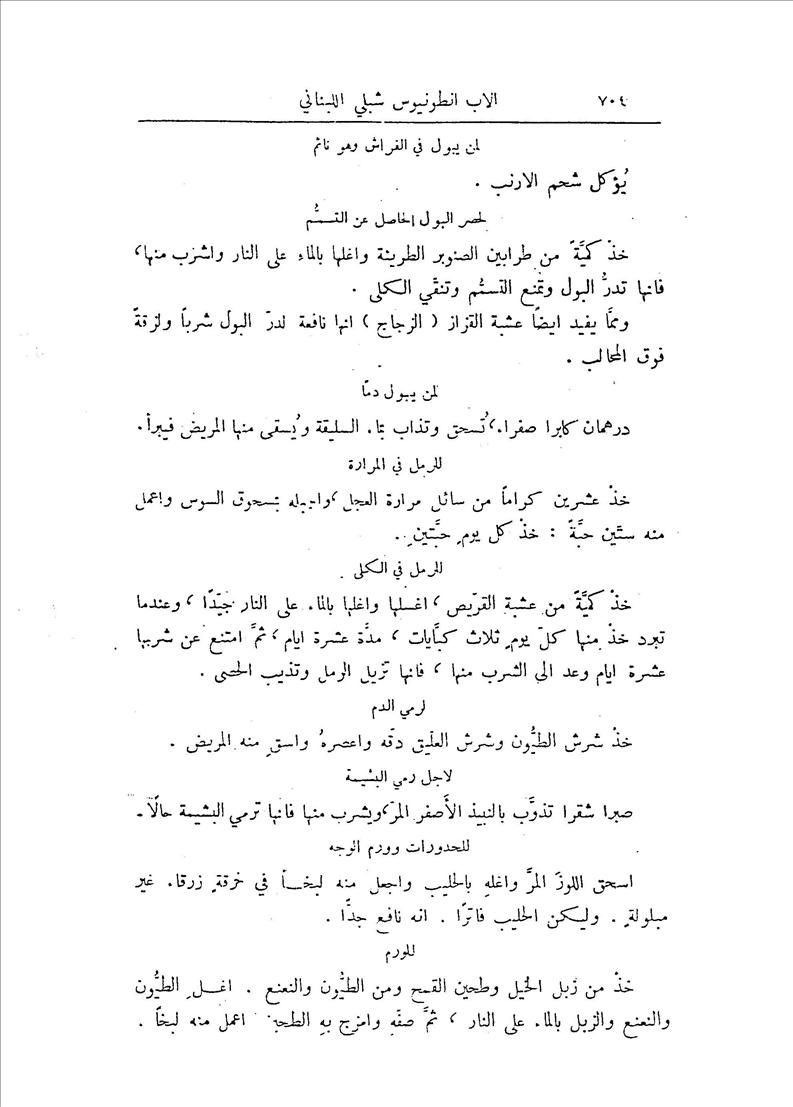 ٧٠٤ الاب انطونيوس شبلي اللبناني
لمن يبول في الفراش وهو نائم
يُؤكل شحم الارنب .
لحصر البول الحاصل عن التسمُّم
خذْ كمَّيَّةً من طرابين الصنوبر الطرينة واغلها بالماء على النار واشرب منها،
فانها تدرُّ البول وتمنع التسمُّم وتنقّي الكلى .
وممَّا يفيد ايضاً عشبة القزاز ( الزجاج ) انها نافعة لدرّ البول شرباً ولزقةً
فوق المحالب .
لمن يبول دمًا
درهمان كابرا صفراء، تُسحق وتذاب بماء السليقة ويُسقى منها المريض فيبرأ.
للرمل في المرارة
خذْ عشرين كراماً من سائل مرارة العجل، واجبله بمسحوق السوس واعمل
منه ستّين حبَّةً : خذْ كل يومٍ حبَّتين .
للرمل في الكلى
خذْ كمَّيَّةً من عشبة القرّيص، اغسلها واغلها بالماء على النار جيّدًا، وعندما
تبرد خذْ منها كلّ يومٍ ثلاث كبَّايات، مدَّة عشرة ايام، ثمَّ امتنع عن شربها
عشرة ايام وعد الى الشرب منها، فانها تزيل الرمل وتذيب الحصى .
لرمي الدم
خذْ شرش الطيُّون وشرش العلّيق دقّه واعصرهُ واسقِ منه المريض .
لاجل رمي البشيمة
صبرا شقرا تذوَّب بالنبيذ الأصفر المرّ، ويشرب منها فانها ترمي البشيمة حالًا.
للحدورات وورم الوجه
اسحق اللوزَ المرَّ واغلهِ بالحليب واجعل منه لبخـاً في خرقةٍ زرقاء غير
مبلولةٍ . وليكن الحليب فاترًا . انه نافع جدًّا .
للورم
خذْ من زبل الخيل وطحين القمح ومن الطيُّون والنعنع . اغـلِ الطيُّون
والنعنع والزبل بالماء على النار، ثمَّ صفّهِ وامزج بهِ الطحين اعمل منه لبخاً .